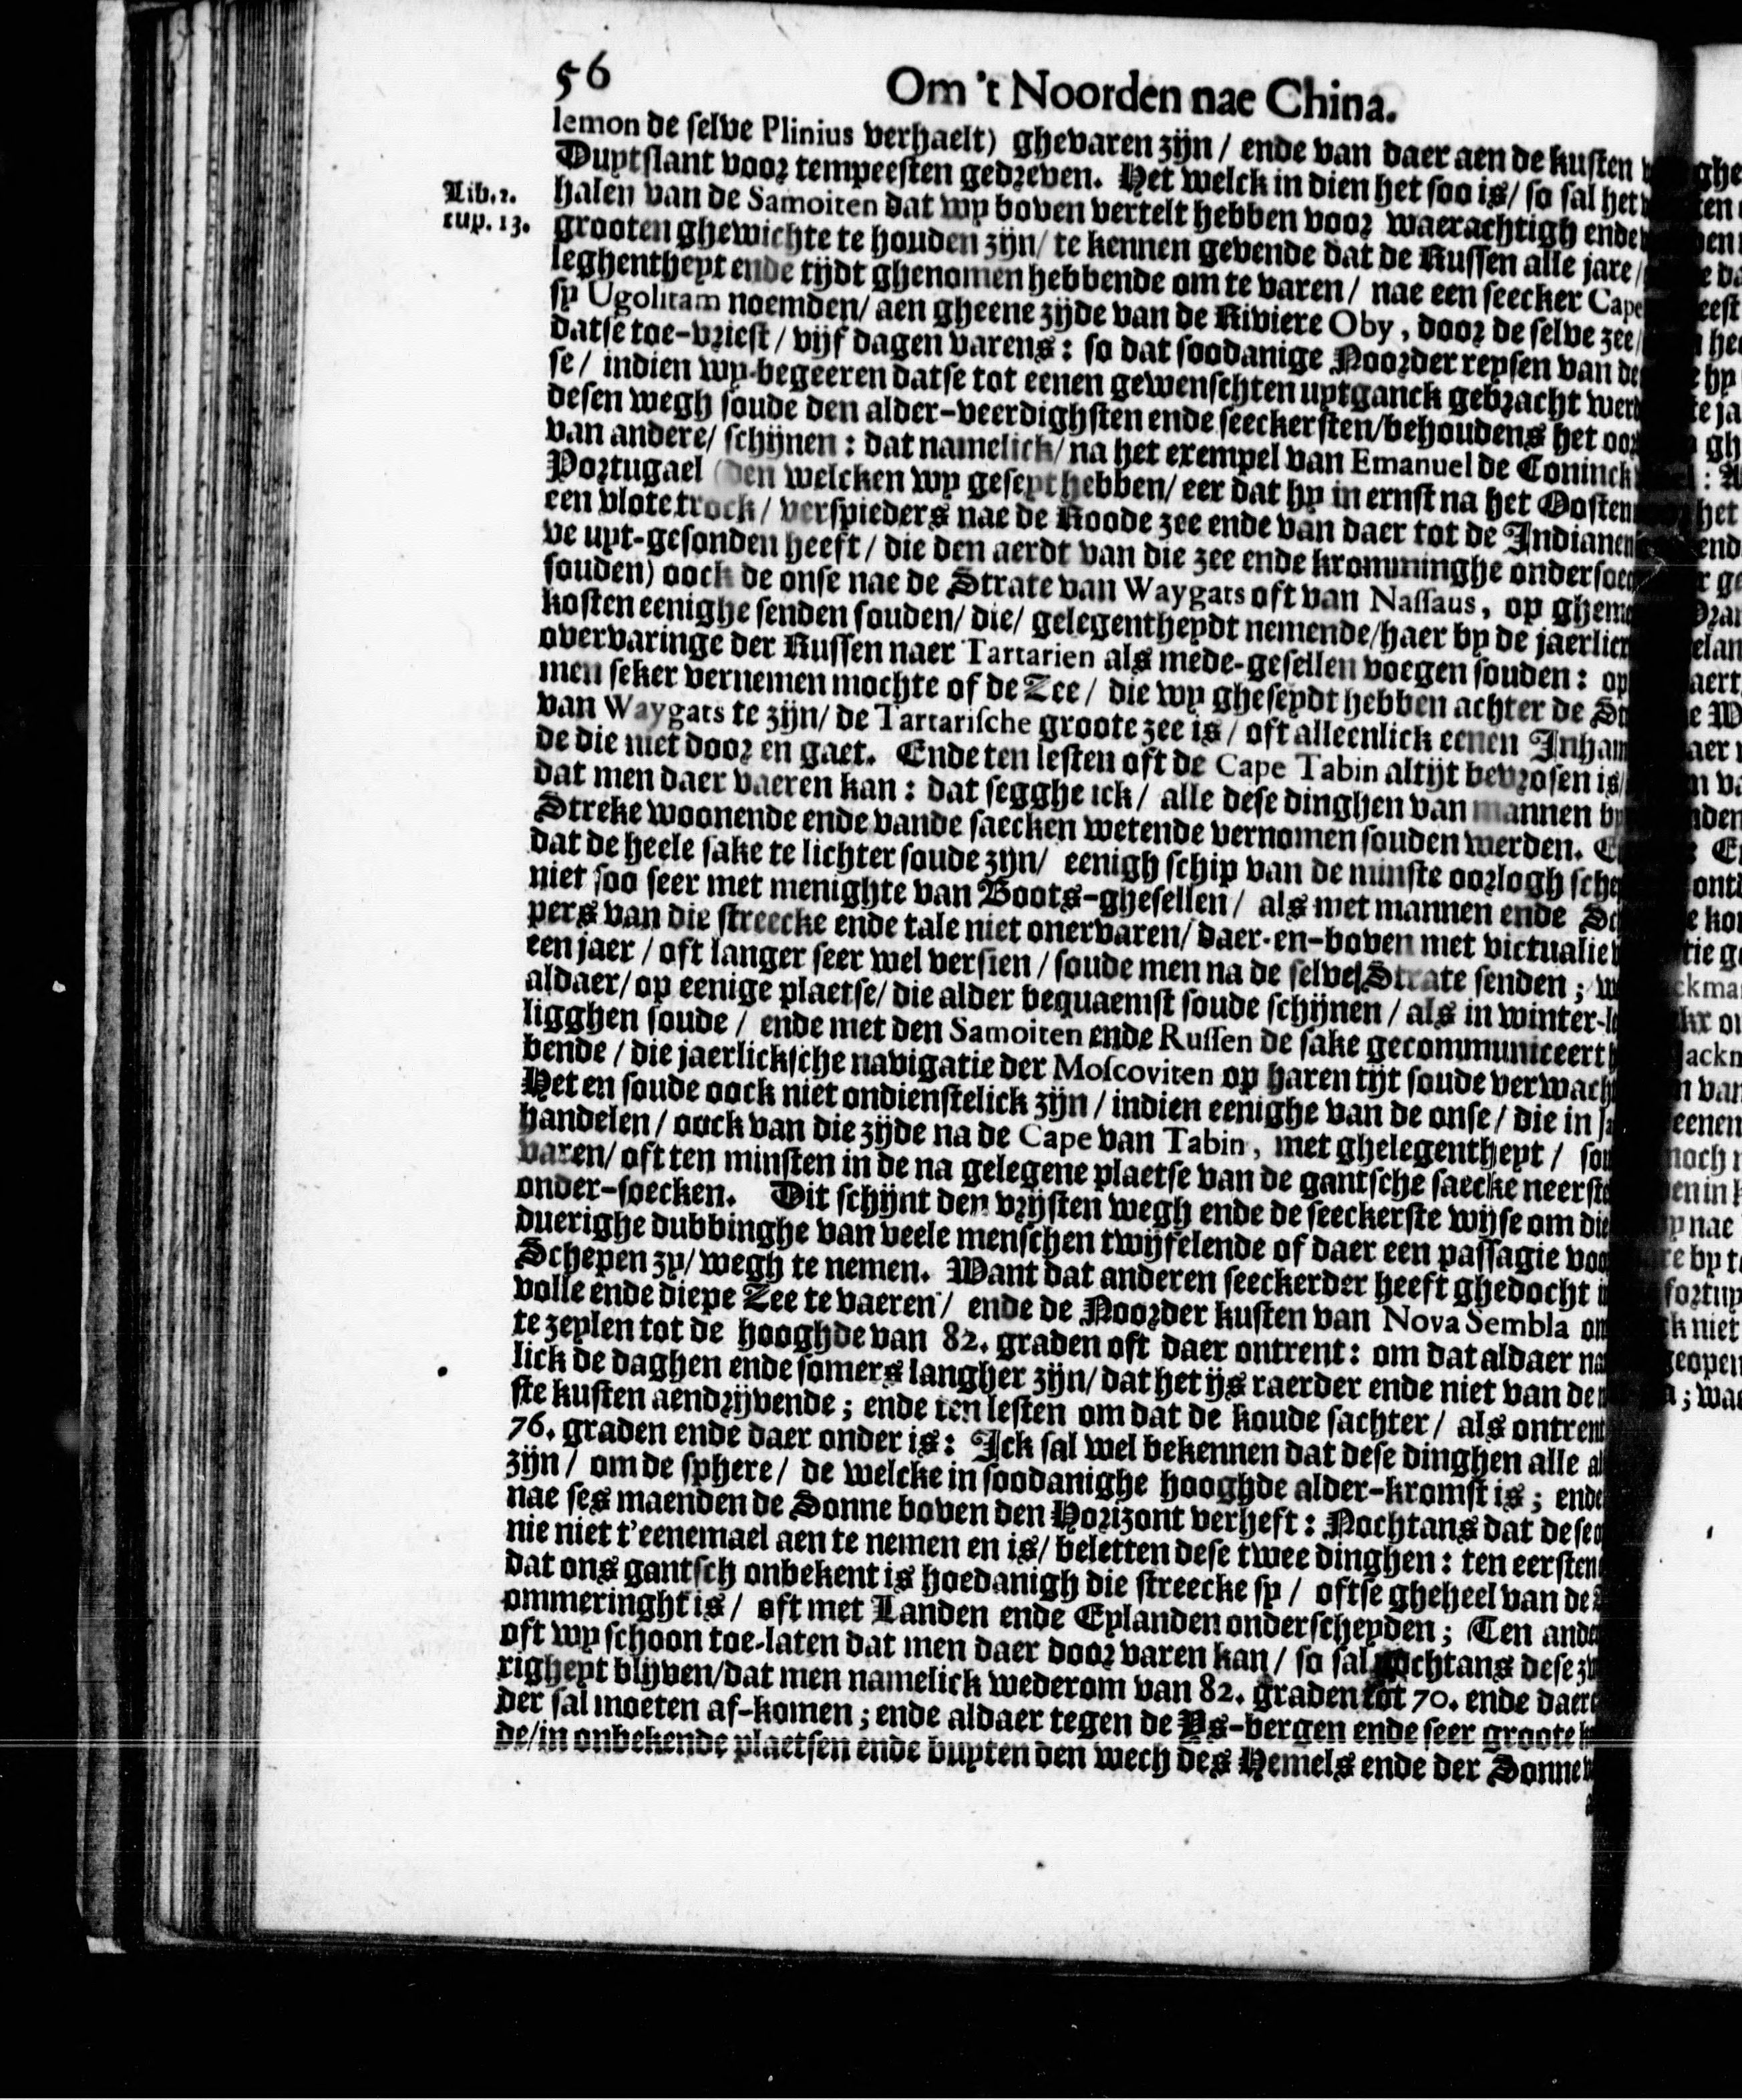 56
Om 't Noorden nae China.
lemon de selve Plinius verhaelt) ghevaren zijn / ende van daer aen de kusten
Duytslant voor tempeesten gedreven. Het welck in dien het soo is / so sal het
Lib. 2.
cap. 13.
halen van de Samoiten dat wy boven vertelt hebben voor waerachtigh ende
grooten ghewichte te houden zijn / te kennen gevende dat de Russen alle jare /
leghentheyt ende tijdt ghenomen hebbende om te varen / nae een seecker Cape
sy Ugolitam noemden / aen gheene zijde van de Riviere Oby, door de selve zee /
datse toe-vriest / vijf dagen varens: so dat soodanige Noorder reysen van de
se / indien wy begeeren datse tot eenen gewenschten uytganck gebracht
desen wegh soude den alder-veerdighsten ende seeckersten / behoudens het
van andere / schijnen: dat namelick / na het exempel van Emanuel de Coninck
Portugael (den welcken wy geseyt hebben / eer dat hy in ernst na het Oosten
een vlote trock / verspieders nae de Roode zee ende van daer tot de Indianen
ve uyt-gesonden heeft / die den aerdt van die zee ende kromminghe
souden) oock de onse nae de Strate van Waygats oft van Nassaus, op
kosten eenighe senden souden / die / gelegentheydt nemende / haer by de
overvaringe der Russen naer Tartarien als mede-gesellen voegen souden: op
men seker vernemen mochte of de Zee / die wy gheseydt hebben achter de
van Waygats te zijn / de Tartarische groote zee is / oft alleenlick eenen
de die niet door en gaet. Ende ten lesten oft de Cape Tabin altijt bevrosen is /
dat men daer vaeren kan: dat segghe ick / alle dese dinghen van mannen
Streke woonende ende vande saecken wetende vernomen souden werden.
dat de heele sake te lichter soude zijn / eenigh schip van de minste oorlogh
niet soo seer met menighte van Boots-ghesellen / als met mannen ende
pers van die streecke ende tale niet onervaren / daer-en-boven met victualie
een jaer / oft langer seer wel versien / soude men na de selve Strate senden;
aldaer / op eenige plaetse / die alder bequaemst soude schijnen / als in
ligghen soude / ende met den Samoiten ende Russen de sake gecommuniceert
bende / die jaerlicksche navigatie der Moscoviten op haren tijt soude
Het en soude oock niet ondienstelick zijn / indien eenighe van de onse / die in
handelen / oock van die zijde na de Cape van Tabin, met ghelegentheyt /
varen / oft ten minsten in de na gelegene plaetse van de gantsche saecke
onder-soecken. Dit schijnt den vrijsten wegh ende de seeckerste wijse om die
duerighe dubbinghe van veele menschen twijfelende of daer een passagie
Schepen zy / wegh te nemen. Want dat anderen seeckerder heeft ghedocht
volle ende diepe Zee te vaeren / ende de Noorder kusten van Nova Sembla
te zeylen tot de hooghde van 82. graden oft daer ontrent: om dat aldaer
lick de daghen ende somers langher zijn / dat het ijs raerder ende niet van de
ste kusten aendrijvende; ende ten lesten om dat de koude sachter / als
76. graden ende daer onder is: Ick sal wel bekennen dat dese dinghen alle
zijn / om de sphere / de welcke in soodanighe hooghde alder-kromst is; ende
nae ses maenden de Sonne boven den Horizont verheft: Nochtans dat dese
nie niet t'eenemael aen te nemen en is / beletten dese twee dinghen: ten eersten
dat ons gantsch onbekent is hoedanigh die streecke sy / oftse gheheel van de
ommeringht is / oft met Landen ende Eylanden onderscheyden; Ten
oft wy schoon toe-laten dat men daer door varen kan / so sal nochtans dese
righeyt blijven / dat men namelick wederom van 82. graden tot 70. ende
der sal moeten af-komen; ende aldaer tegen de Ys-bergen ende seer groote
de / in onbekende plaetsen ende buyten den wech des Hemels ende der Sonne